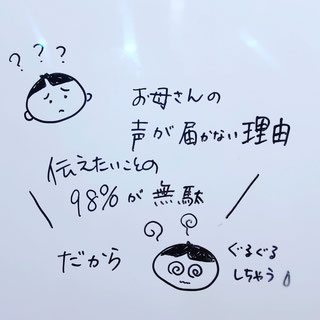 ? ? ?
お母さんの
声が届かない理由
伝えたいことの
98%が無駄
だから
? ?
ぐるぐる
しちゃう